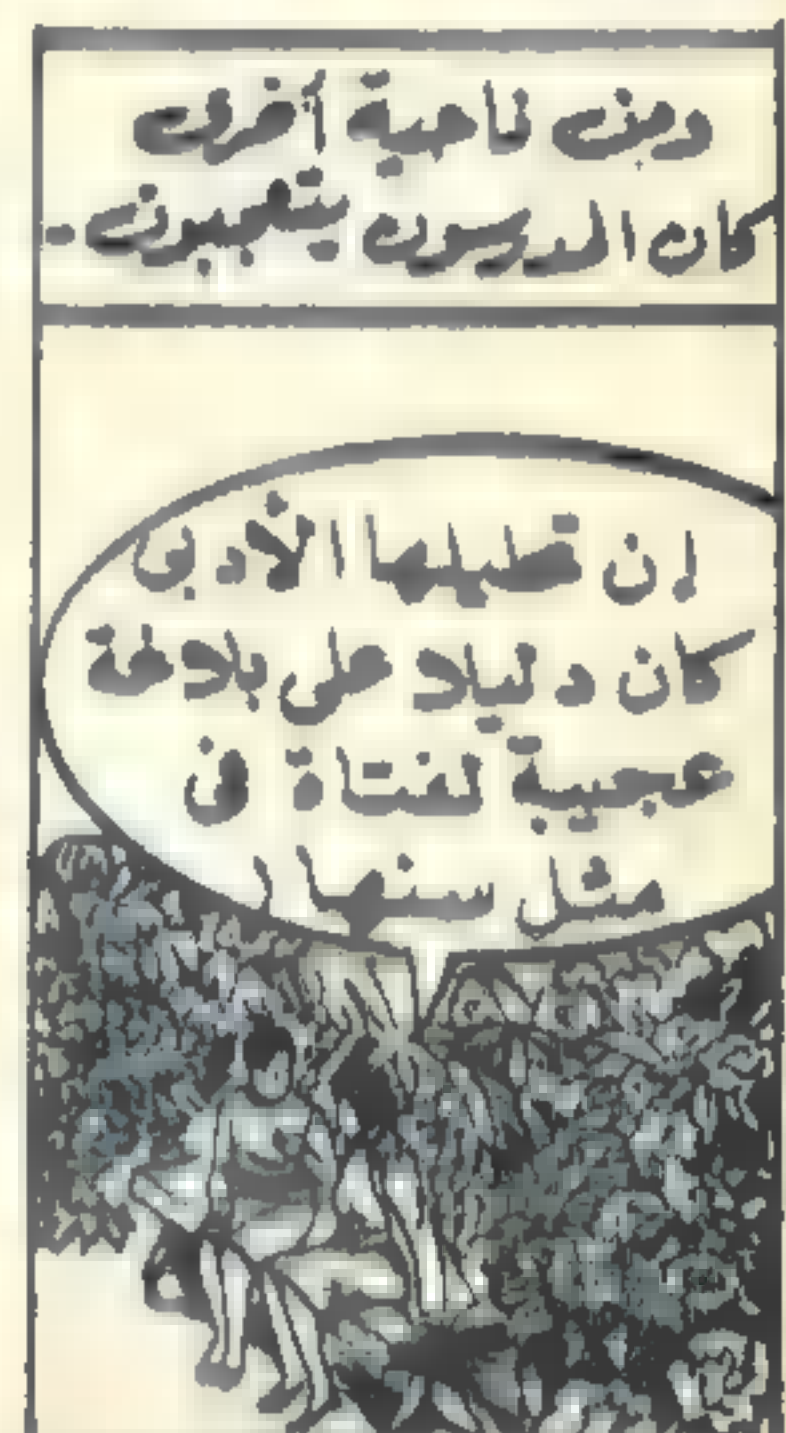 ومن ناحية أخرى
كان المدرسون يتعجبون..
إن تحليلها الأدبى
كان دليلا على بلاغة
عجيبة لفتاة فى
مثل سنها !